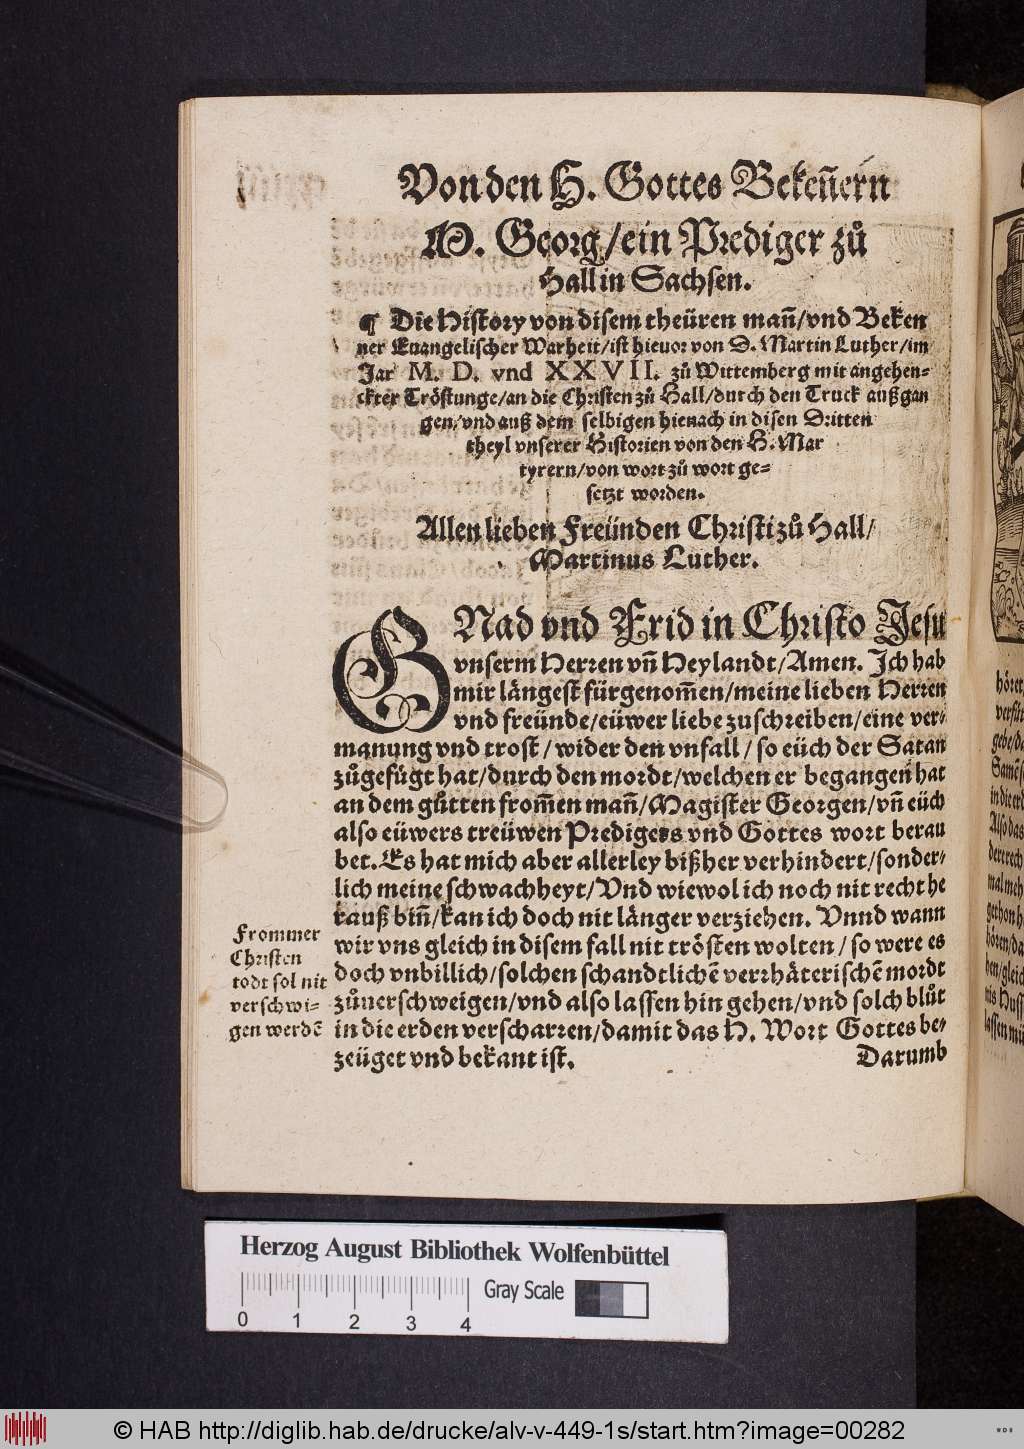 Von den H. Gottes Bekeñern
M. Georg/ein Prediger zů
Hall in Sachsen.
¶ Die History von disem theüren mañ/vnd Beken
ner Euangelischer Warheit/ist hieuor von D. Martin Luther/im
Jar M. D. vnd XXVII. zů Wittemberg mit angehen=
ckter Tröstunge/an die Christen zů Hall/durch den Truck außgan
gen/vnd auß dem selbigen hienach in disen Dritten
theyl vnserer Historien von den H. Mar
tyrern/von wort zů wort ge=
setzt worden.
Allen lieben Freünden Christi zů Hall/
Martinus Luther.
GNad vnd Frid in Christo Jesu
vnserm Herren vñ Heylandt/Amen. Ich hab
mir längest fürgenom̃en/meine lieben Herren
vnd freünde/eüwer liebe zuschreiben/eine ver=
manung vnd trost/wider den vnfall/so eüch der Satan
zůgefügt hat/durch den mordt/welchen er begangen hat
an dem gůtten from̃en mañ/Magister Georgen/vñ eüch
also eüwers treüwen Predigers vnd Gottes wort berau
bet. Es hat mich aber allerley bißher verhindert/sonder=
lich meine schwachheyt/Vnd wiewol ich noch nit recht he
rauß biñ/kan ich doch nit länger verziehen. Vnnd wann
wir vns gleich in disem fall nit trösten wolten/so were es
doch vnbillich/solchen schandtlichẽ verrhäterischẽ mordt
zůuerschweigen/vnd also lassen hin gehen/vnd solch blůt
in die erden verscharren/damit das H. Wort Gottes be=
zeüget vnd bekant ist.
Darumb
Frommer
Christen
todt sol nit
verschwi=
gen werdẽ
höret
gebe/da
in die erd
Also das
hören/da
Herzog August Bibliothek Wolfenbüttel
Gray Scale
0 1 2 3 4
© HAB http://diglib.hab.de/drucke/alv-v-449-1s/start.htm?image=00282